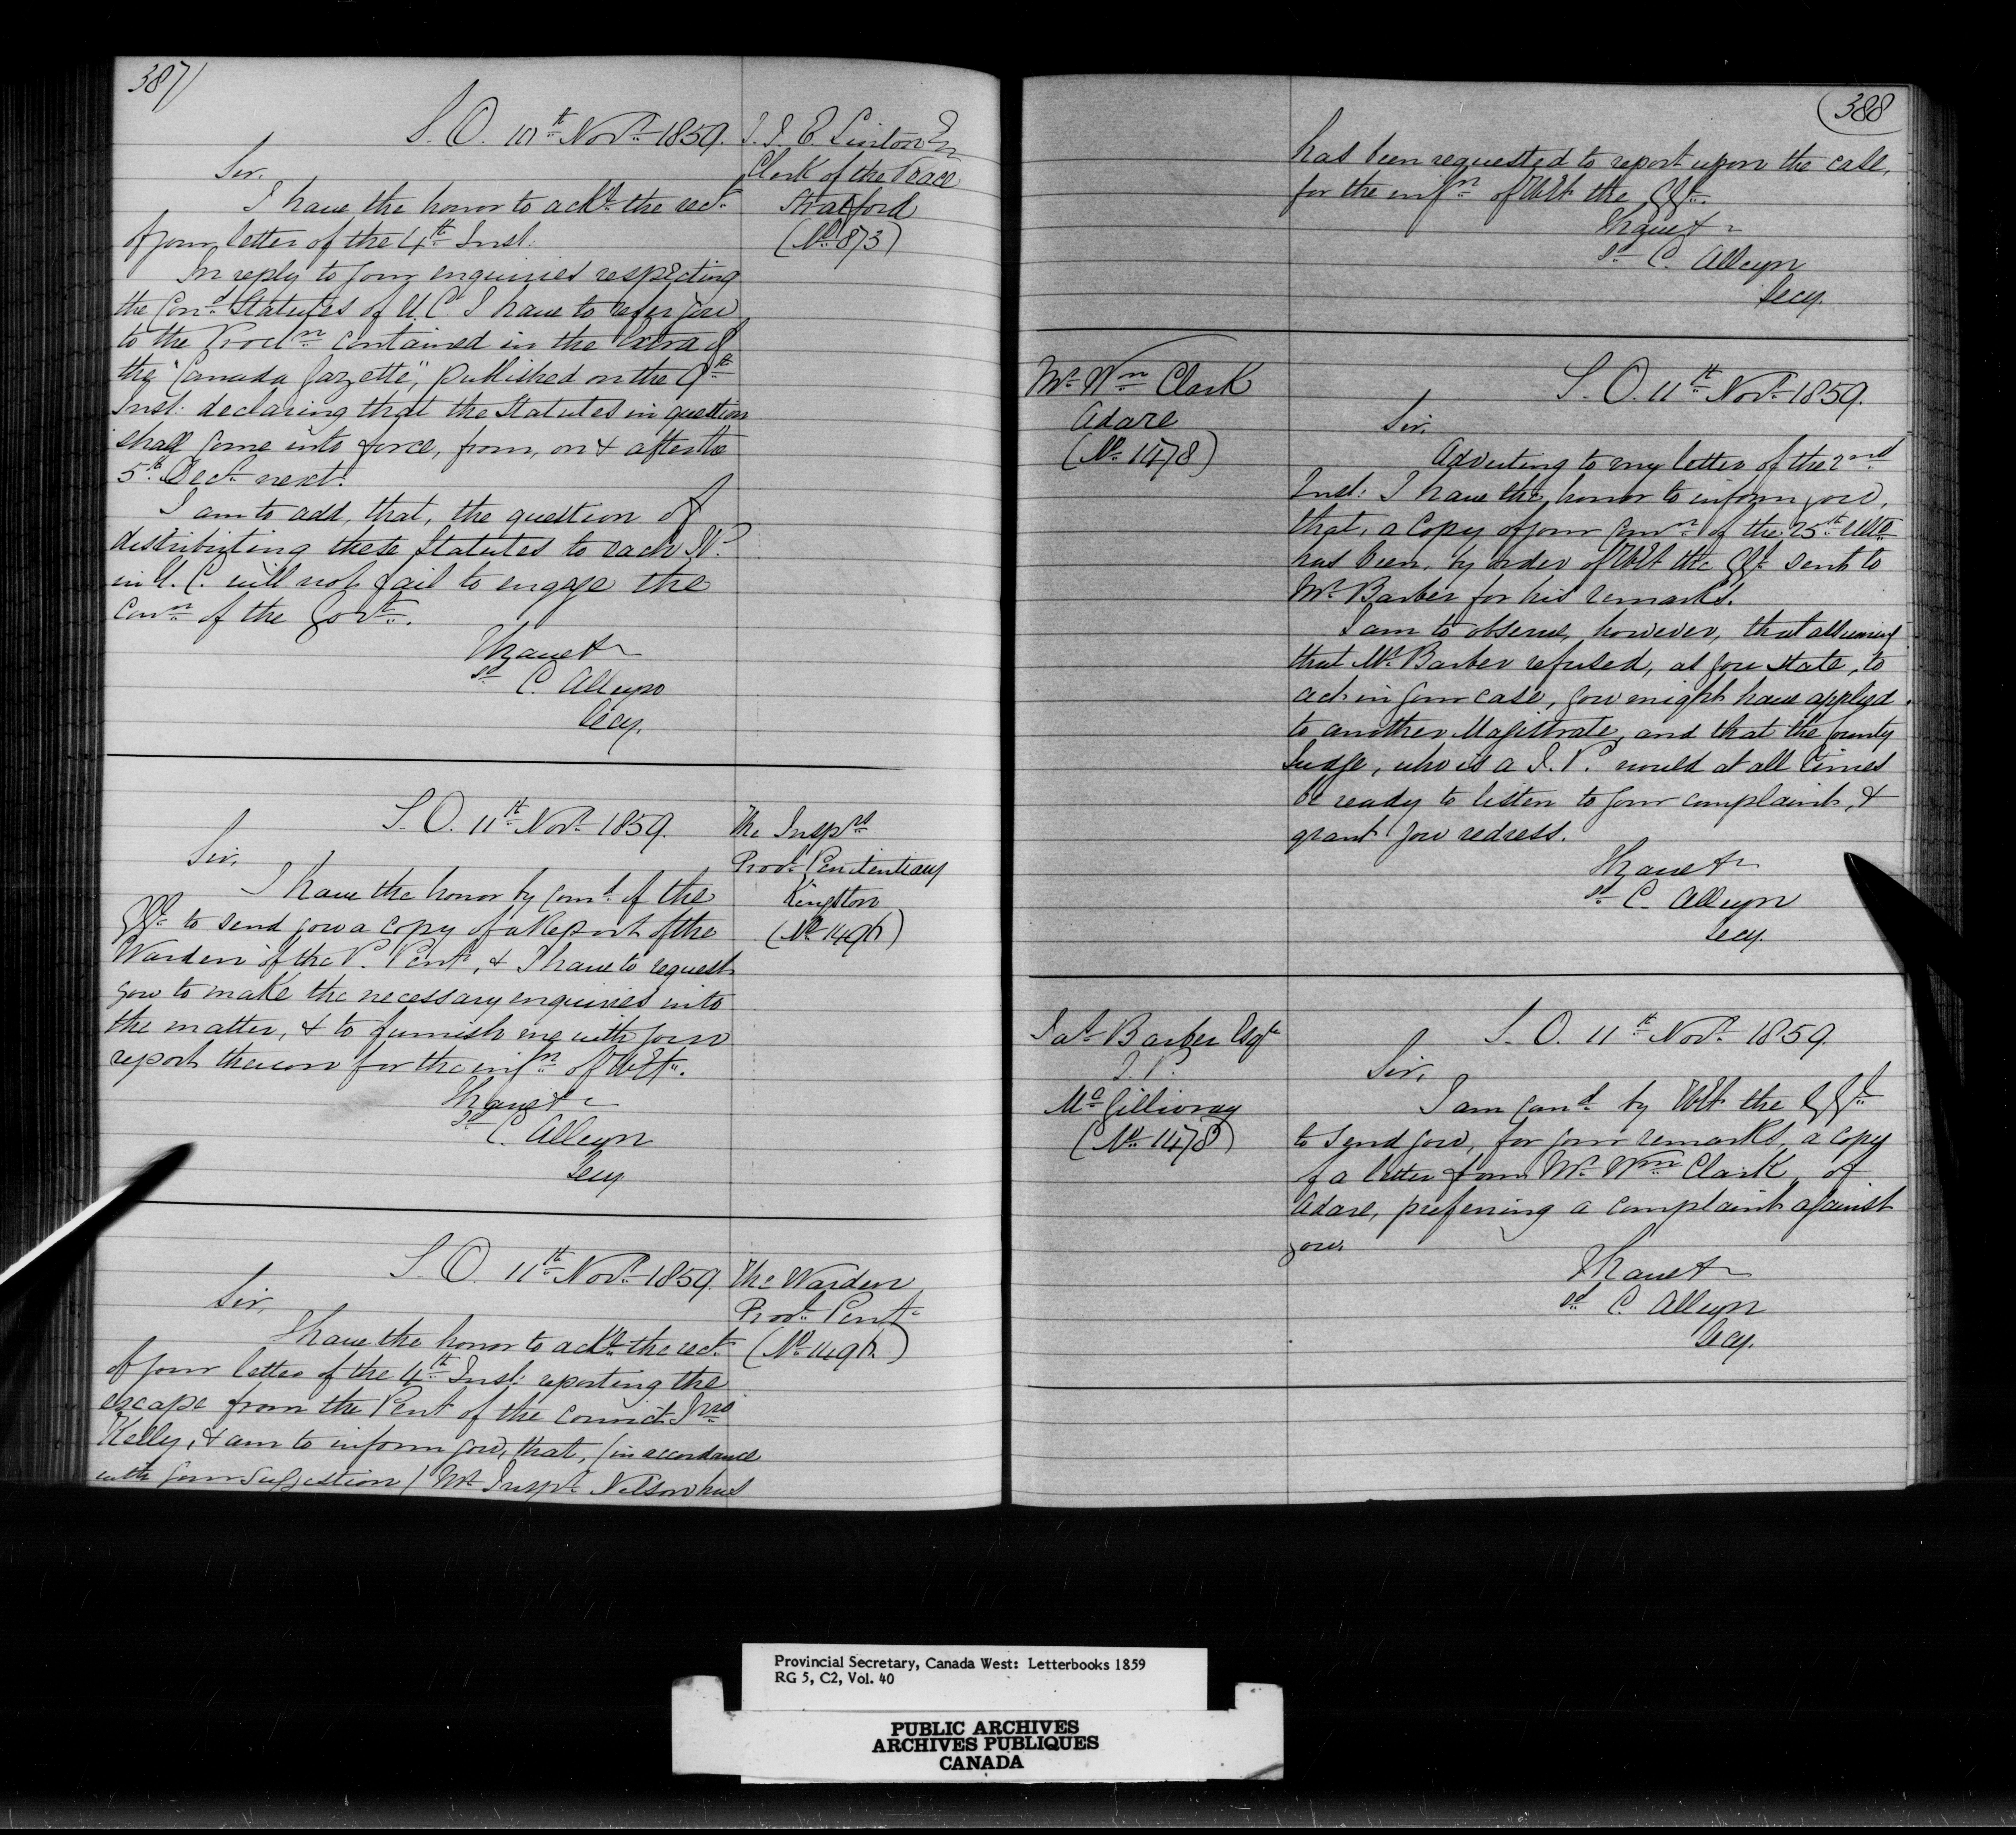 387)
S.O. 10th Novr. 1859.
J. J. E. Linton Er
Clerk of the Peace
Stratford
(No. 873)
Sir,
I have the honor to acke. the rect.
of your letter of the 4th Inst:
In reply to your enquiries respecting
the Cond. Statutes of U.C. I have to refer you
to the Procln. contained in the Extra of
the "Canada Gazette", published on the 9th
Inst: declaring that the Statutes in question
shall come into force, from, on & after the
5th Decr. next.
I am to add, that, the question of
distributing these Statutes to each J.P.
in U.C. will not fail to engage the
Conn. of the Govt.
I have &c
sd. C. Alleyn
Secy.
S.O. 11th Novr. 1859.
The Insprs
Provl. Penitentiary
Kingston
Sir,
I have the honor by Comd. of the
GG. to send you a copy of a Report of the
Warden of the P. Pent., & I have to request
you to make the necessary enquiries into
the matter, & to furnish me with your
report thereon for the infn. of HEx.
I have &c
sd. C. Alleyn
Secy
S.O. 11th Novr. 1859.
The Warden
Provl. Pent.
Sir,
I have the honor to acke. the rect.
of your letter of the 4th Inst: reporting the
escape from the Pent of the convict Jno
Kelly, & am to inform you, that, (in accordance
with your suggestion) Mr. Inspr. Nelson has
388
has been requested to report upon the case,
for the infn. of HEx the GG.
I have &c
sd. C. Alleyn
Secy.
Mr. Wm. Clark
Adare
(No. 1478)
S.O. 11th Novr. 1859.
Sir,
Adverting to my letter of the 2nd
Inst: I have the honor to inform you,
that, a copy of your Comn. of the 25th Ulto.
has been, by order of HEx the GG. sent to
Mr. Barber for his remarks.
I am to observe, however, that assuming
that Mr. Barber refused, as you state, to
act in your case, you might have applied
to another Magistrate, and that the County
Judge, who is a J.P. would at all times
be ready to listen to your complaint, &
grant you redress.
I have &c
sd. C. Alleyn
Secy.
Barber Esqr.
J.P.
McGillivray
(No. 1478)
S.O. 11th Novr. 1859.
Sir,
I am Comd. by HEx the GG.
to send you, for your remarks, a copy
of a letter from Mr. Wm. Clark, of
Adare, preferring a complaint against
you.
I have &c
sd. C. Alleyn
Secy.
Provincial Secretary, Canada West: Letterbooks 1859
RG 5, C2, Vol. 40
PUBLIC ARCHIVES
ARCHIVES PUBLIQUES
CANADA